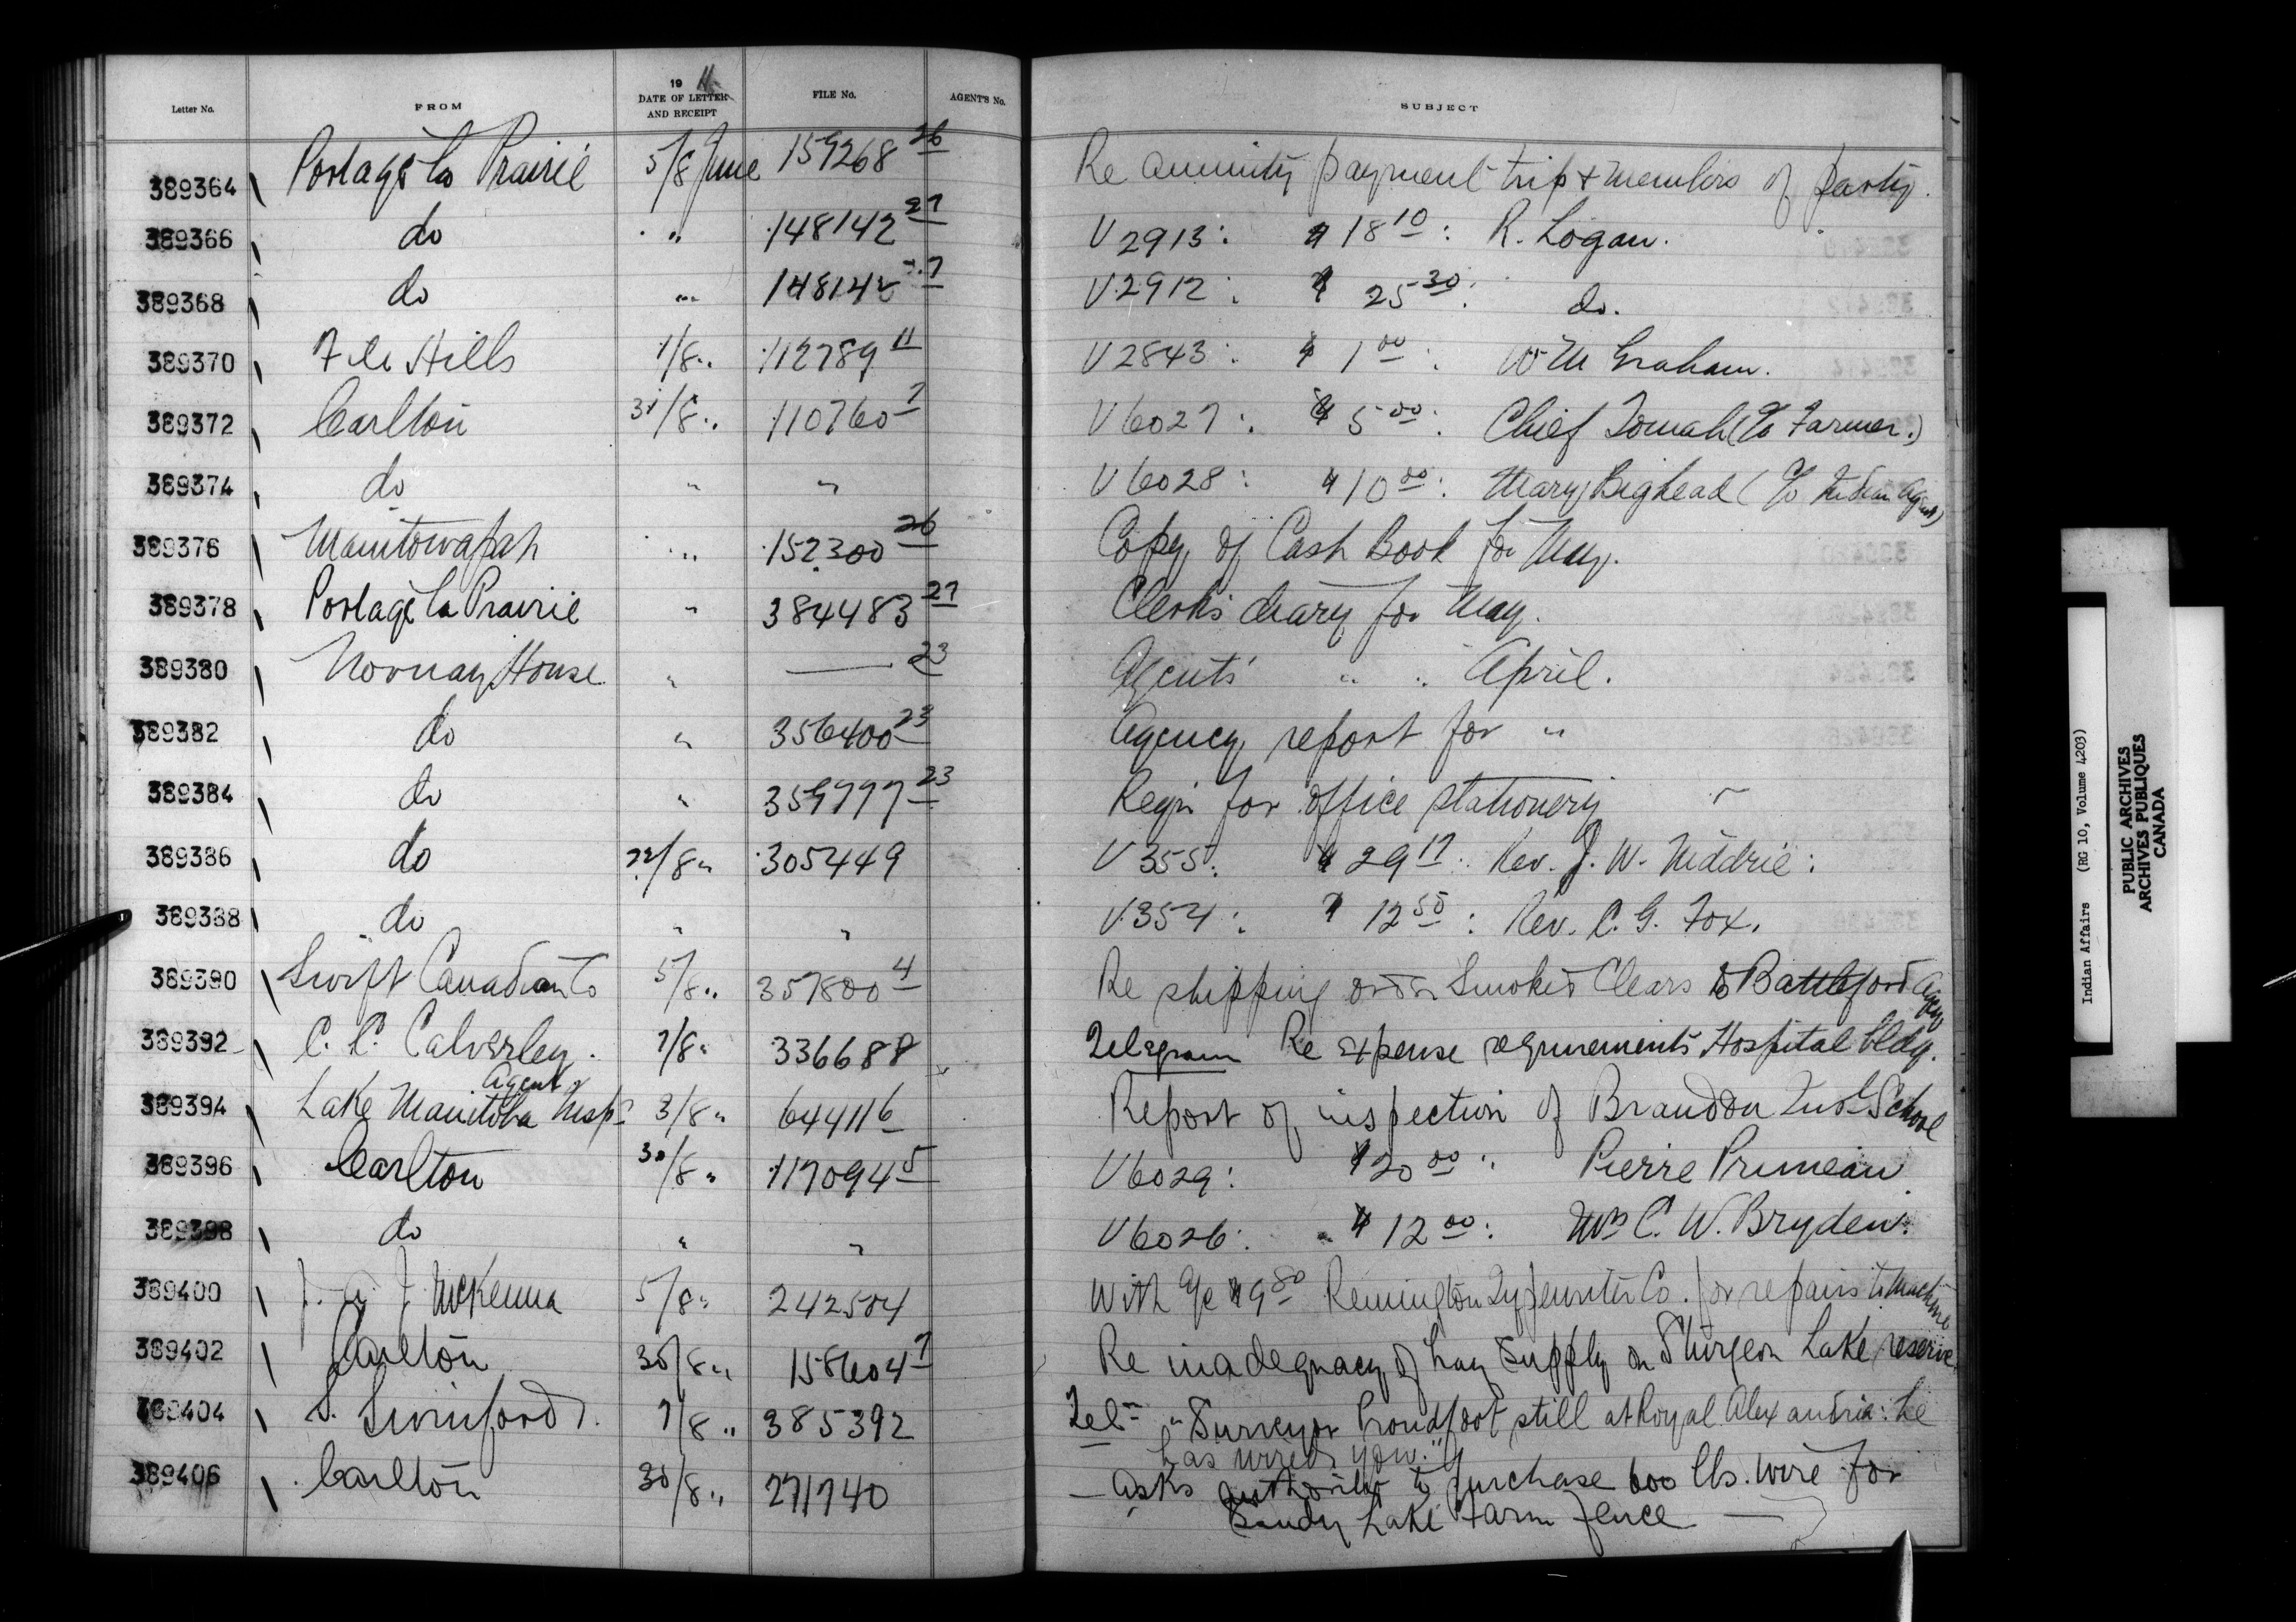 Letter No. FROM 19 11 DATE OF LETTER AND RECEIPT FILE No. AGENT'S No. SUBJECT
389364 Portage La Prairie 5/8 June 159268 26 Re annuity payment trip & members of party.
389366 do " 148142 27 V 2913: $18 10: R. Logan.
389368 do " 148142 27 V 2912: $ 25 30: do.
389370 File Hills 1/8 " 112789 11 V 2843: $ 1 00: W M Graham.
389372 Carlton 31/8 " 110760 7 V 6027: $ 5 00: Chief (c/o Farmer.)
389374 do " " V 6028: $10 00: Mary Bighead (c/o Indian Agent)
389376 Manitowapah " 152300 26 Copy of Cash Book for May.
389378 Portage La Prairie " 384483 27 Clerk's diary for May.
389380 Norway House " — 23 Agents' " " April.
389382 do " 356400 23 Agency report for "
389384 do " 359777 23 Reqn for office stationery
389386 do 22/8 " 305449 V 355: $ 29 17: Rev. J. W. Niddrie:
389388 do " " V 354: $ 12 50: Rev. C. G. Fox.
389390 Swift Canadian Co 5/8 " 357800 4 Re shipping order Smoked Clears to Battleford Agcy
389392 C. C. Calverley. 7/8 " 336688 Telegram Re expense requirements Hospital bldg.
389394 Lake Manitoba Insp. Agent 3/8 " 64411 6 Report of inspection of Brandon Indl School
389396 Carlton 30/8 " 117094 5 V 6029: $20 00: Pierre Primeau
389398 do " " V 6026: $ 12 00: Mrs C. W. Bryden.
389400 J. A. J. McKenna 5/8 " 242504 With a/c $9 80 Remington Typewriter Co. for repairs to machine
389402 Carlton 30/8 " 158604 7 Re inadequacy of hay supply on Sturgeon Lake reserve
389404 S. Swinford 7/8 " 385392 Tel- "Surveyor Proudfoot still at Royal Alexandria: he
has wired you."
389406 Carlton 30/8 " 271740 — Asks authority to purchase 600 lbs. wire for
Sandy Lake Farm fence —
Indian Affairs (RG 10, Volume 4203)
PUBLIC ARCHIVES
ARCHIVES PUBLIQUES
CANADA